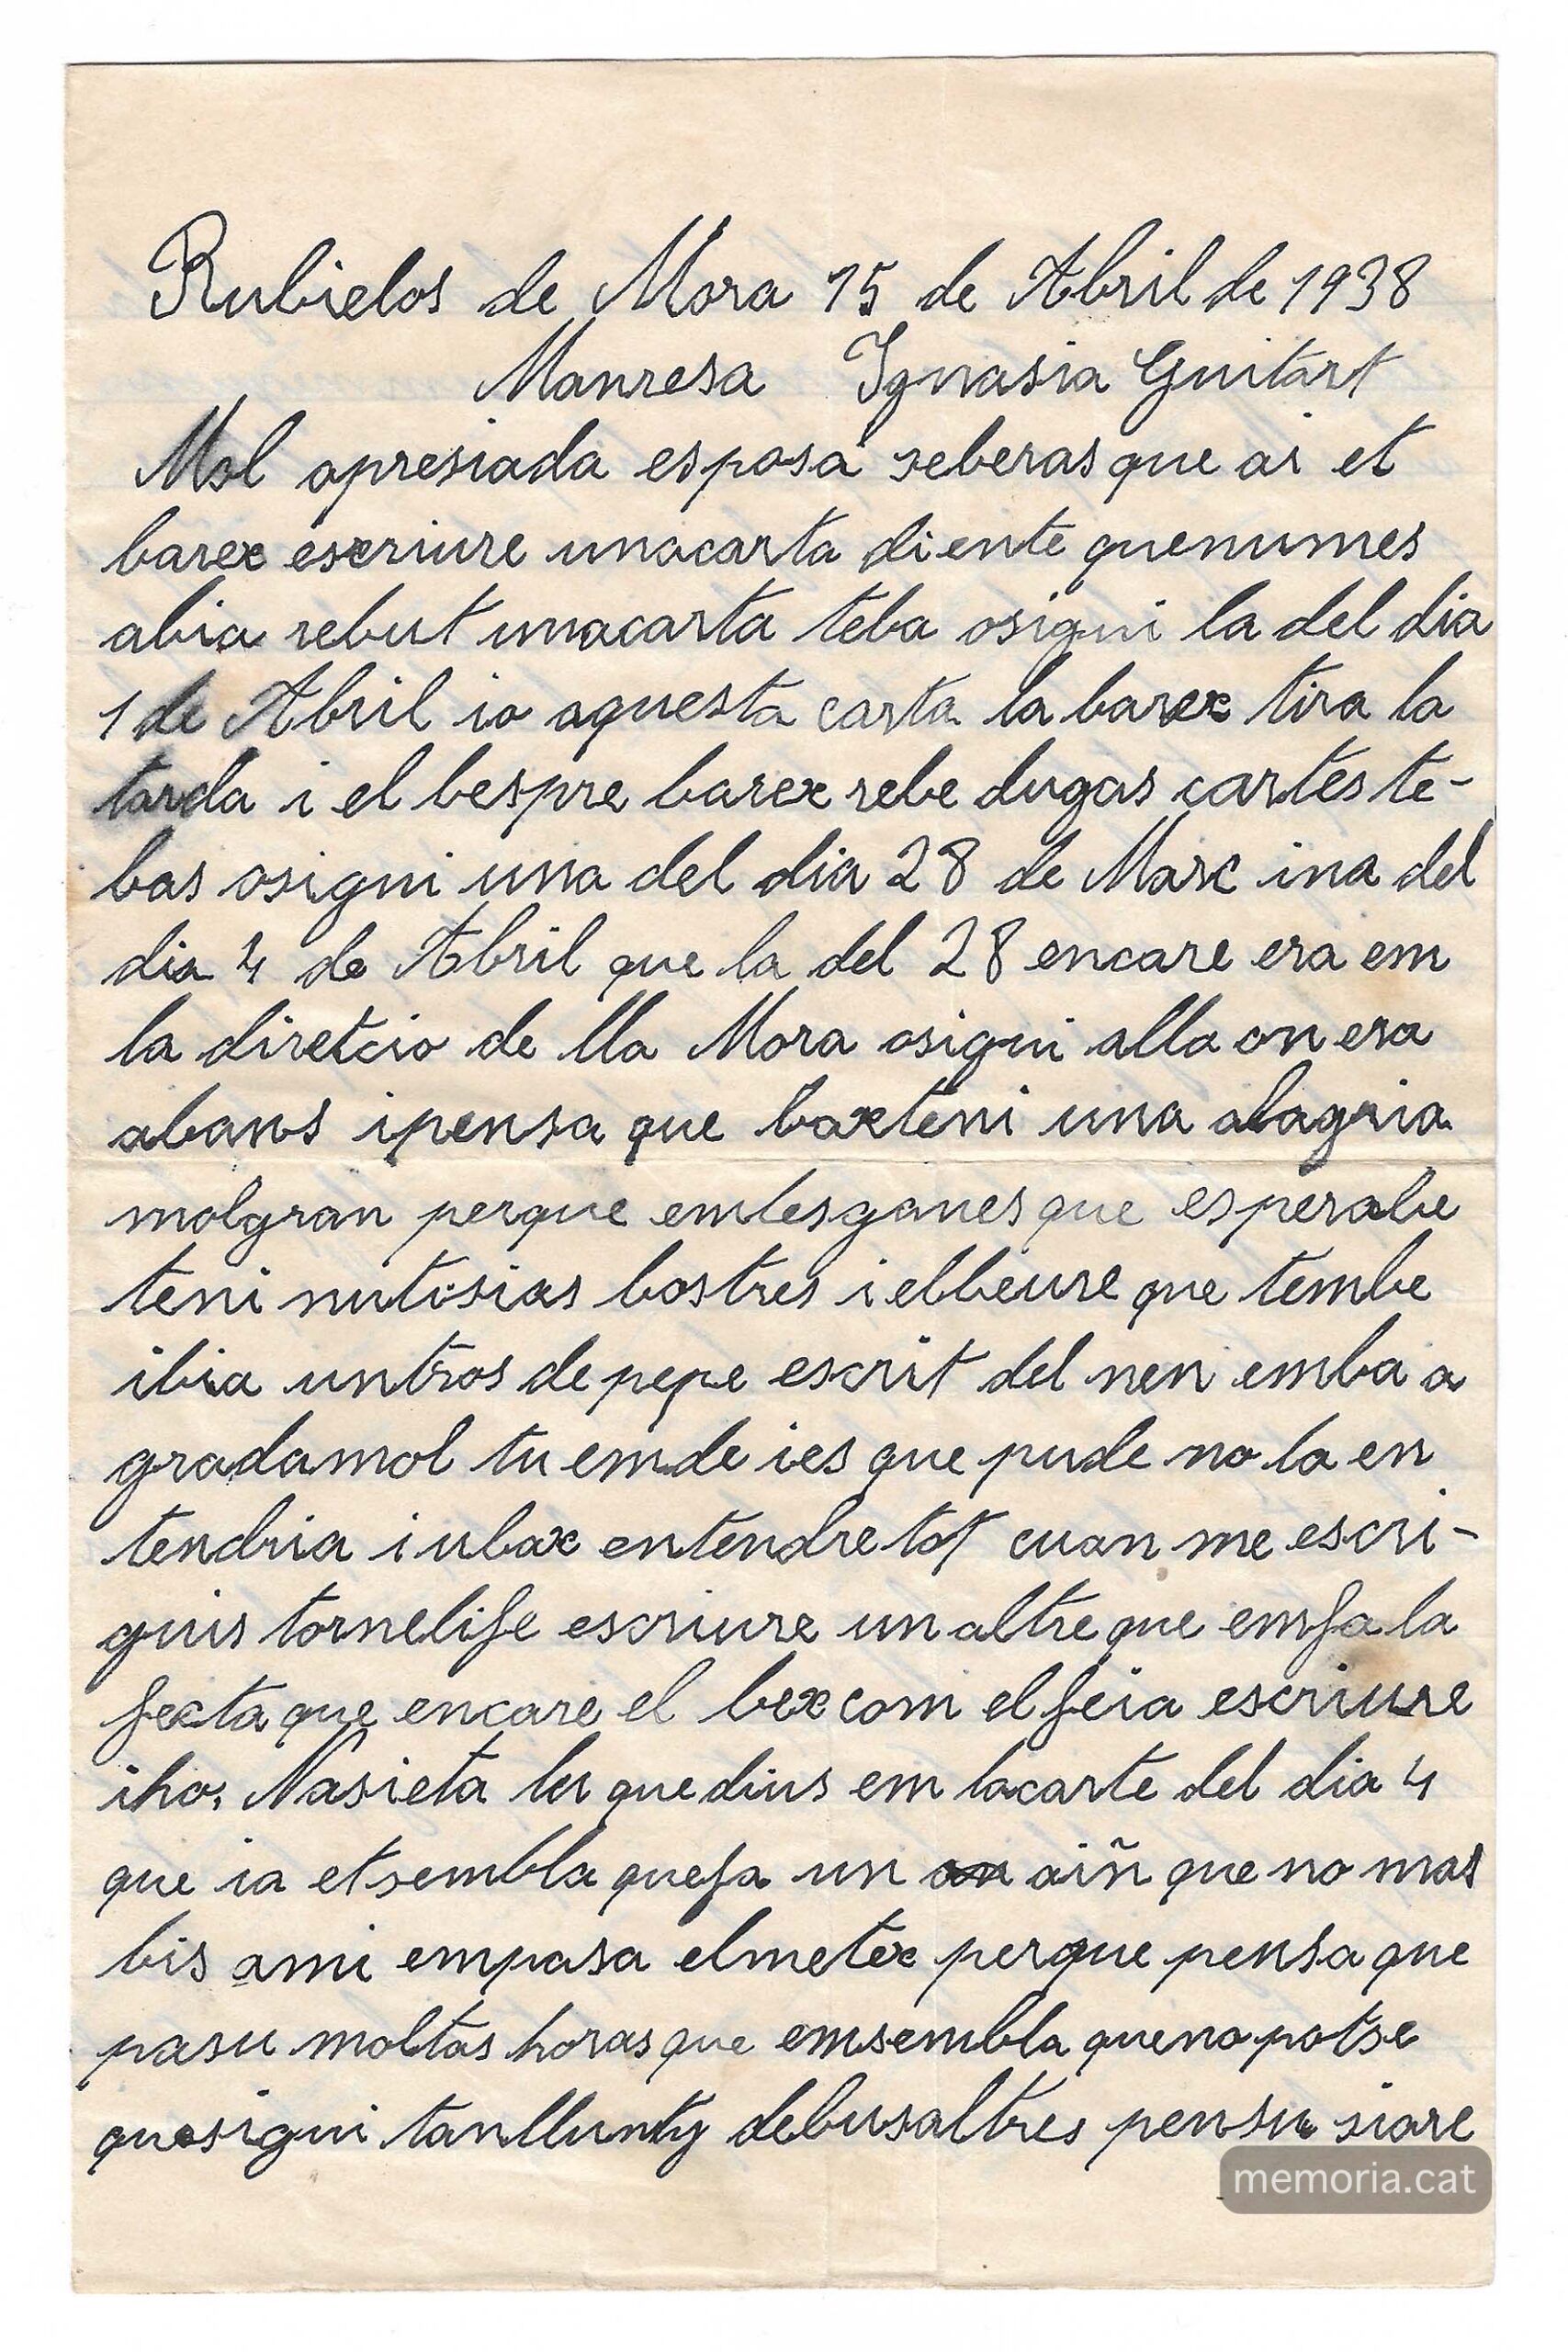 Rubielos de Mora 15 de Abril de 1938
Manresa Ignasia Guitart
Mol apresiada esposa seberas que ai et
barex escriure unacarta diente quenumes
abia rebut unacarta teba osigui la del dia
1 de Abril io aquesta carta la barex tira la
tarda i el bespre barex rebe dugas cartes te-
bas osigui una del dia 28 de Marc ina del
dia 4 de Abril que la del 28 encare era em
la diretcio de lla Mora osigui alla on era
abans ipensa que baxteni una alagria
molgran perque emlesganes que esperabe
teni nutisias bostres i elbeure que tembe
ibia untros de pepe escrit del nen emba a
gradamol tu emde ies que pude no la en
tendria i ubax entendre tot cuan me escri-
guis tornelife escriure un altre que emfa la
fecta que encare el bex com el feia escriure
iho, Nasieta lu que dius em lacarte del dia 4
que ia etsembla quefa un aiñ que no mas
bis ami empasa elmetex perque pensa que
pasu moltas horas que emsembla queno potse
quesigui tanllunty debusaltres pensu siare
memoria.cat